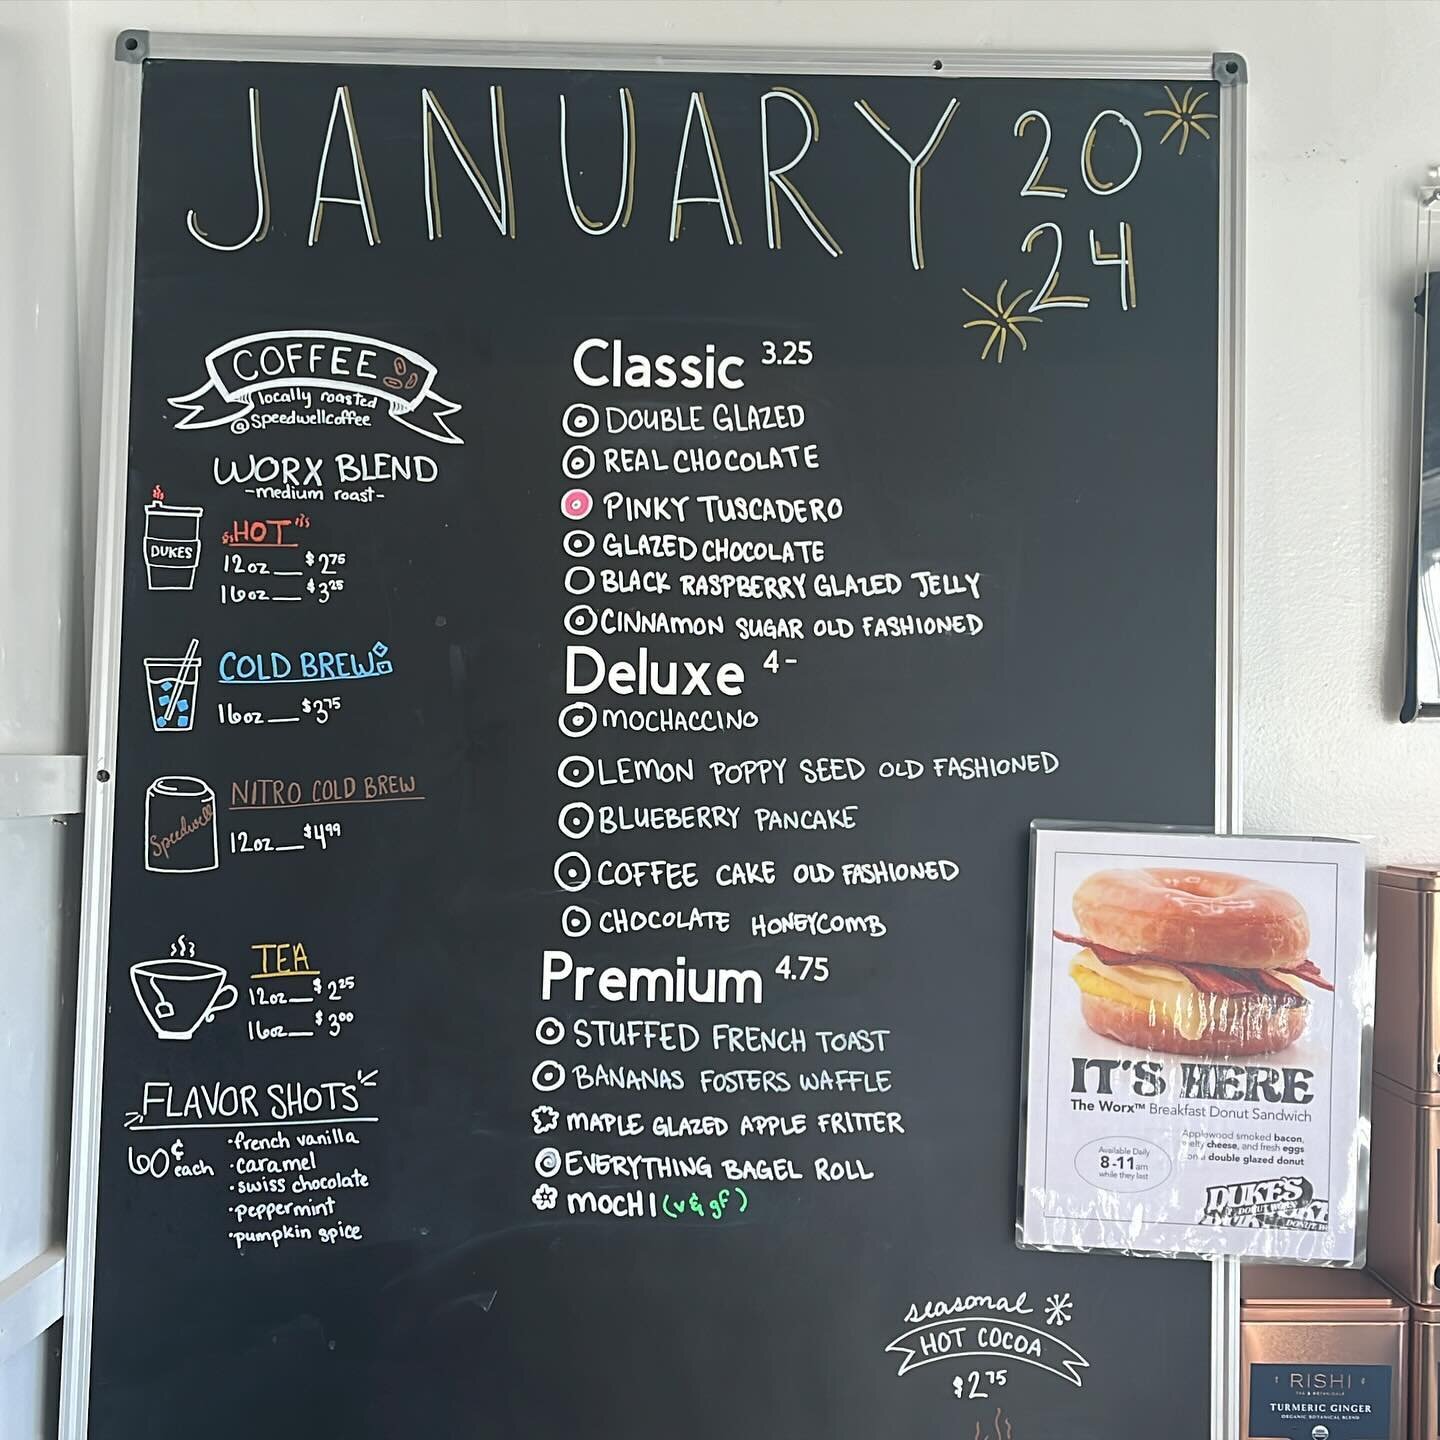 JANUARY 20
24
COFFEE
locally roasted
@speedwellcoffee
WORX BLEND
-medium roast-
DUKES
HOT
12oz__$2.75
16oz__$3.25
COLD BREW
16oz__$3.75
NITRO COLD BREW
Speedwell
12oz__$4.99
TEA
12oz__$2.25
16oz__$3.00
FLAVOR SHOTS
60¢ each
·french vanilla
·caramel
·swiss chocolate
·peppermint
·pumpkin spice
Classic 3.25
DOUBLE GLAZED
REAL CHOCOLATE
PINKY TUSCADERO
GLAZED CHOCOLATE
BLACK RASPBERRY GLAZED JELLY
CINNAMON SUGAR OLD FASHIONED
Deluxe 4-
MOCHACCINO
LEMON POPPY SEED OLD FASHIONED
BLUEBERRY PANCAKE
COFFEE CAKE OLD FASHIONED
CHOCOLATE HONEYCOMB
Premium 4.75
STUFFED FRENCH TOAST
BANANAS FOSTERS WAFFLE
MAPLE GLAZED APPLE FRITTER
EVERYTHING BAGEL ROLL
MOCHI (v & gf)
IT'S HERE
The Worx™ Breakfast Donut Sandwich
Available Daily
8-11am
while they last
Applewood smoked bacon,
melty cheese, and fresh eggs
on a double glazed donut
DUKE'S
DONUT WORX
seasonal
HOT COCOA
$2.75
RISHI
TEA & BOTANICALS
TURMERIC GINGER
ORGANIC BOTANICAL BLEND